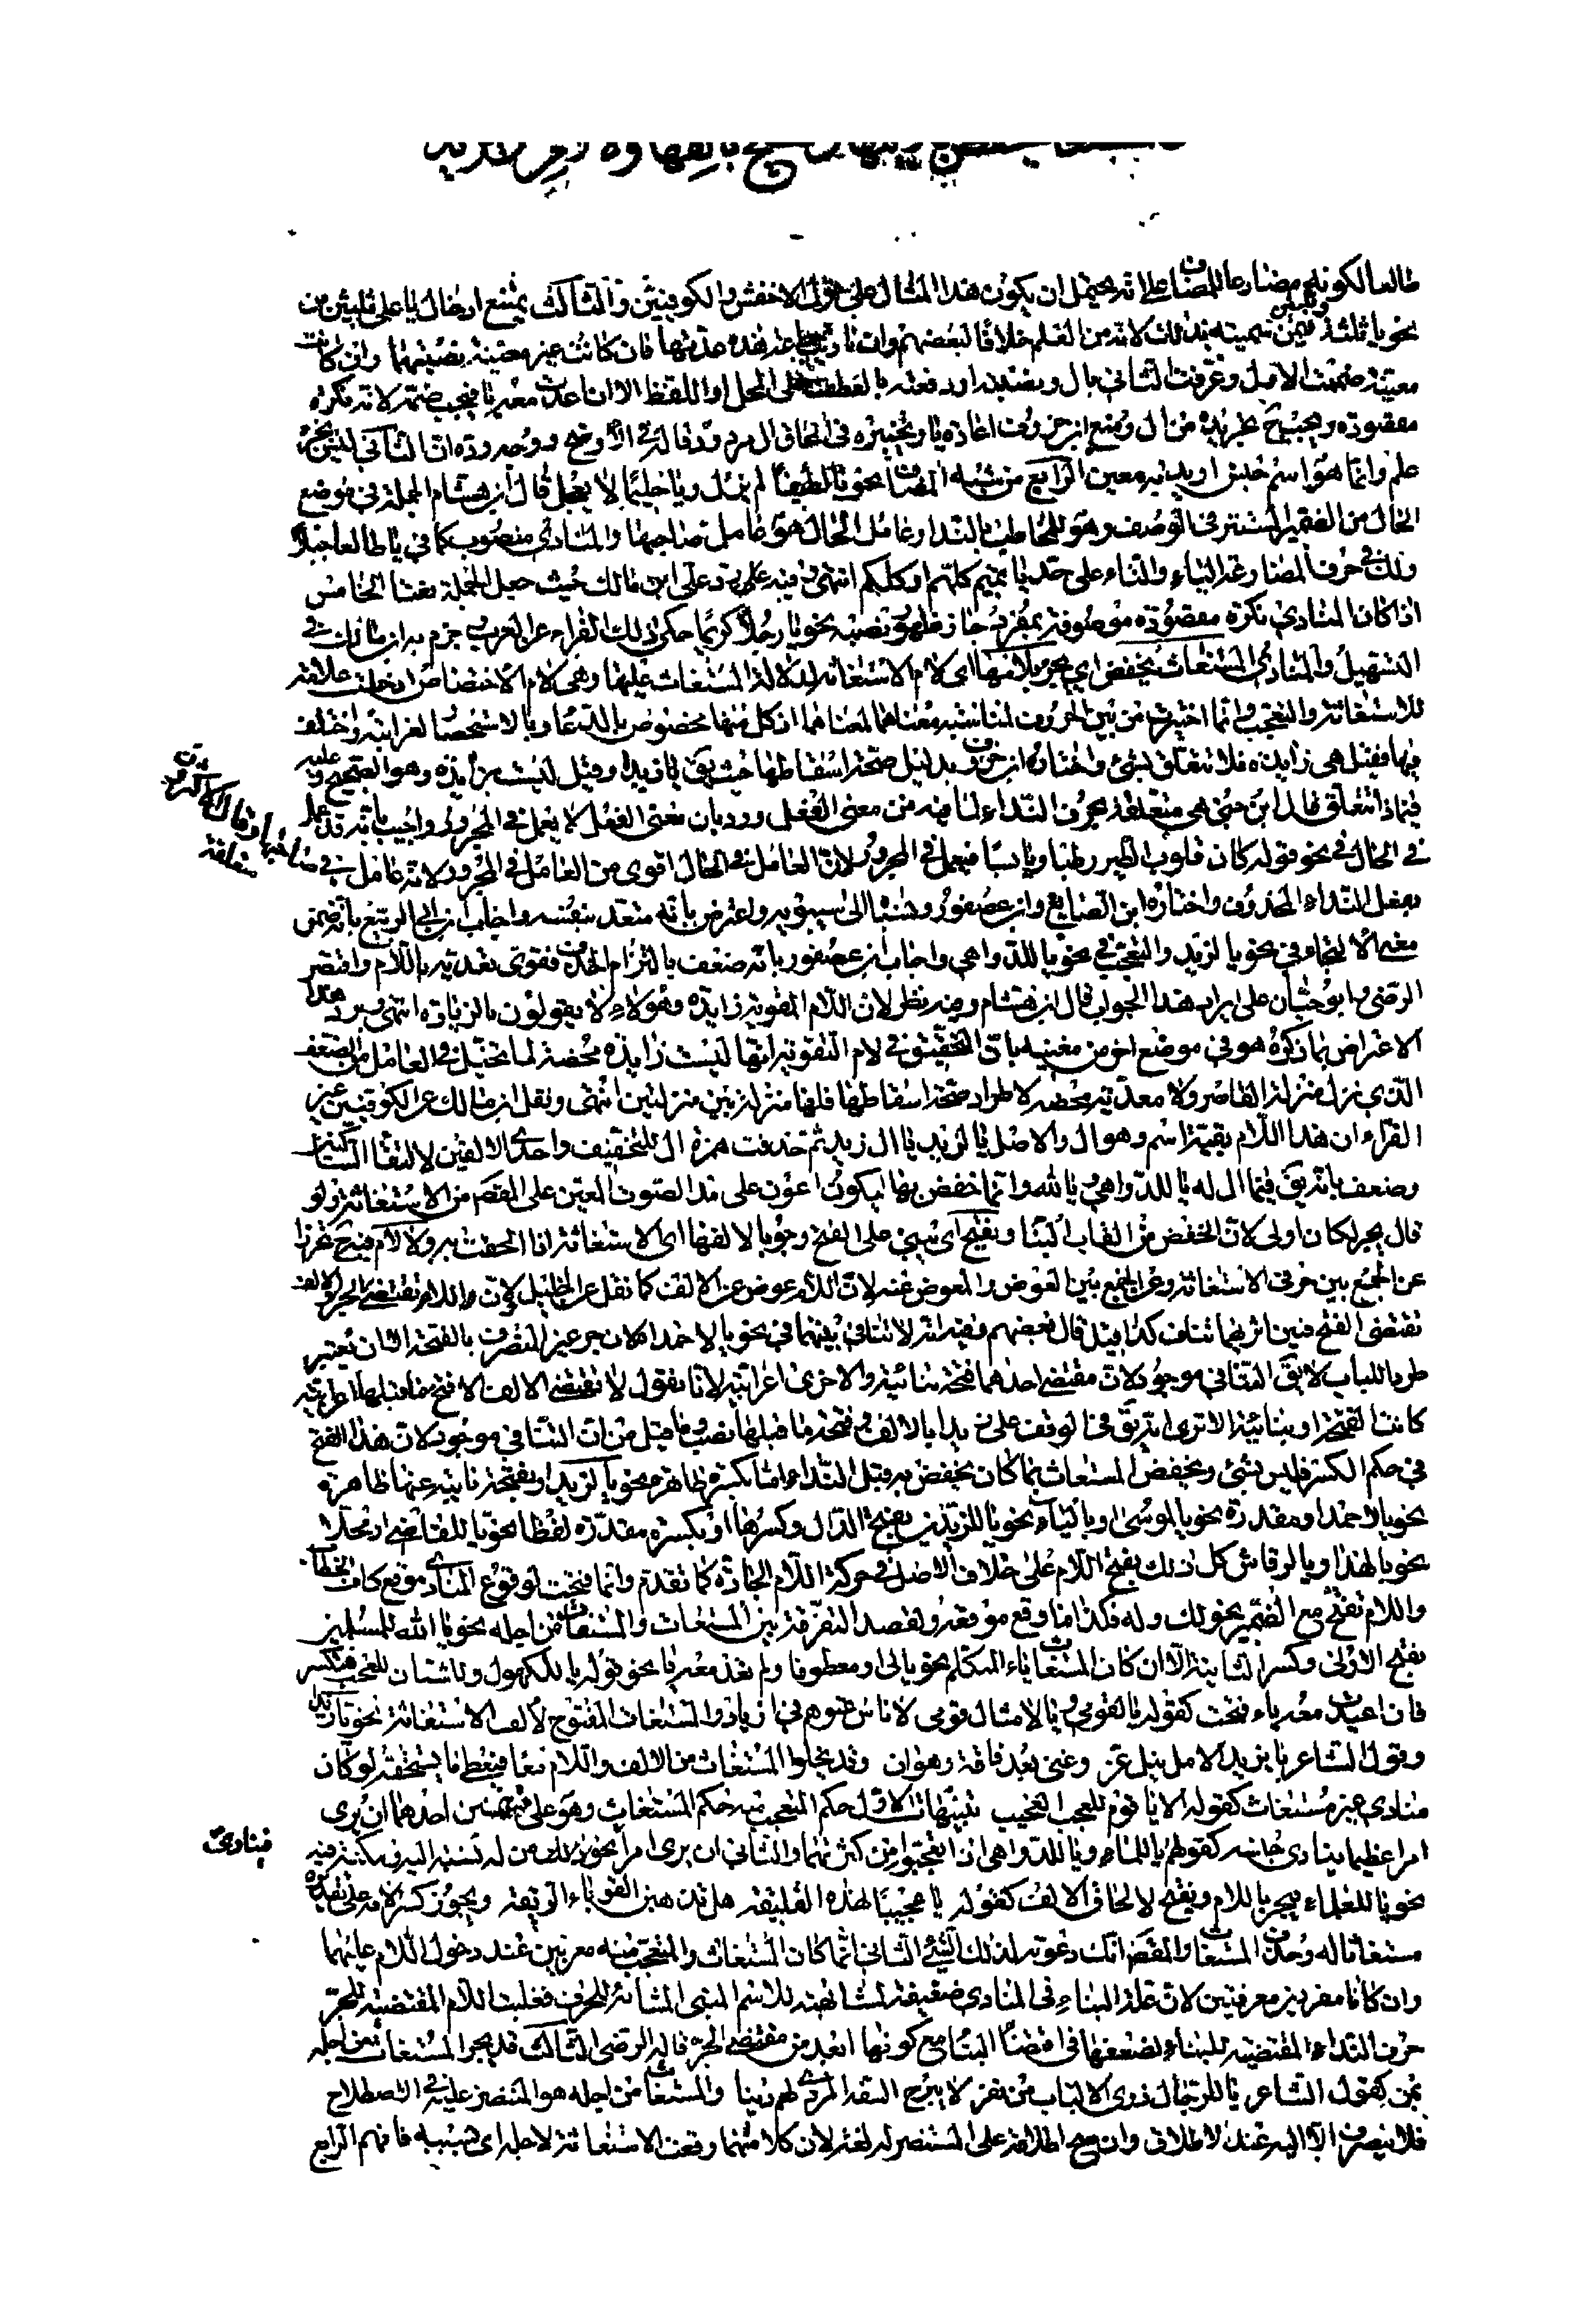 طالعا لكونه مضارعا للمضاف على انه يحتمل ان يكون هذا المثال على قول الاخفش والكوفيين والثالث يمتنع ادخال يا على ثلثين من
نحو يا ثلثة وثلثين فيمن سميته بذلك لانه من العلم خلافا لبعضهم وان ناديت جماعة هذه عدتها فان كانت غير معينة نصبتهما وان كانت
معينة ضممت الاول وعرفت الثاني بال ونصبته او رفعته بالعطف على المحل او اللفظ الا ان اعدت معه يا فيجب ضمه لانه نكرة
مقصودة ويجب تجريده من ال ومنع ابن خروف اعادة يا وتخييره في الحاق ال مردود قاله في الاوضح ووجه رده ان الثاني ليس بجزء
علم وانما هو اسم جنس اريد به معين الرابع من شبه المضاف نحو يا لطيفا لم يزل ويا حليما لا يعجل قال ابن هشام الجملة في موضع
الحال من الضمير المستتر في الوصف وهو المخاطب بالندا وعامل الحال هو عامل صاحبها والمنادى منصوب كما في يا طالعا جبلا
ولك في حرف المضارعة الياء والتاء على حد يا تميم كلهم او كلكم انتهى وفيه على رد على ابن مالك حيث جعل الجملة نعتا الخامس
اذا كان المنادى نكرة مقصودة موصوفة بمفرد جاز ضمه ونصبه نحو يا رجلا كريما حكى ذلك الفراء عن العرب جزم به ابن مالك في
التسهيل والمنادى المستغاث يخفض اي يجر بلامها اي لام الاستغاثة لدلالة المستغاث عليها وهي لام الاختصاص ادخلت علامة
للاستغاثة والتعجب وانما اختيرت من بين الحروف لمناسبة معناها لمعناهما اذ كل منهما مخصوص بالدعا وبالاستحضار لغرابته واختلف
فيها فقيل هي زايدة فلا تتعلق بشئ واختاره ابن خروف بدليل صحة اسقاطها حيث بقى يا زيد وقيل ليست بزايدة وهو الصحيح وعليه
فبماذا تتعلق قال ابن جني هي متعلقة بحرف النداء لما فيه من معنى الفعل ورد بان معنى الفعل لا يعمل في المجرور واجيب بانه قد عمل
في الحال في نحو قوله كان قلوب الطير رطبا ويابسا فيعمل في المجرور لان العامل في الحال اقوى من العامل في المجرور لانه عامل في صاحبها وقال الاكثرون متعلقة
بفعل النداء المحذوف واختاره ابن الضايع وابن عصفور ونسباه الى سيبويه واعترض بانه متعد بنفسه واجاب ابن ابي الربيع بانه ضمن
معنى الالتجاء في نحو يا لزيد والتعجب في نحو يا للدواهي واجاب ابن عصفور بانه ضعف بالتزام الحذف فقوى تعديه باللام واقتصر
الرضى وابو حيان على ايراد هذا الجواب قال ابن هشام وفيه نظر لان اللام المقوية زايدة وهولاء لا يقولون بالزيادة انتهى ويرد هذا
الاعتراض بما ذكره هو في موضع اخر من مغنيه بان التحقيق في لام التقوية انها ليست زايدة محضة لما تخيل في العامل من الضعف
الذي نزل منزلة القاصر ولا معدية محضة لاطراد صحة اسقاطها فلها منزلة بين منزلتين انتهى ونقل ابن مالك عن الكوفيين عن
الفراء ان هذا اللام بقية اسم وهو ال والاصل يا لزيد يا ال زيد ثم حذفت همزة ال للتخفيف واحدى الالفين لالتقا الساكنين
وضعف بانه يق فيما ال له يا للدواهي ويا لله وانما خفض بها ليكون اعون على مد الصوت المعين على المقصد من الاستغاثة ولو
قال يجر لكان اولى لان الخفض من القاب البنا ويفتح اى يبنى على الفتح وجوبا لالفها اى الاستغاثة اذا الحقت به ولا لام فيه تحرزا
عن الجمع بين حرفى الاستغاثة وعن الجمع بين العوض والمعوض عنه لان اللام عوض عن الالف كما نقل عن الخليل ولان اللام تقتضي الجر والالف
تقتضى الفتح فبين اثريهما تناف كذا قيل قال بعضهم وفيه انه لا تنافي بينهما في نحو يا لاحمدا لان جر غير المنصرف بالفتحة الا ان يعتبر
طردا للباب لا يق التنافي موجود لان مقتضى احدهما فتحة بنائية والاخرى اعرابية لانا نقول لا تقتضي الالف الا فتح ما قبلها اعرابية
كانت الفتحة او بنائية الا ترى انه يق في الوقف على زيدا بالالف وفتحة ما قبلها نصب وما قيل من ان التنافي موجود لان هذا الفتح
في حكم الكسر فليس بشئ ويخفض المستغاث بما كان يخفض به قبل النداء اما بكسرة ظاهرة نحو يا لزيد او بفتحة نايبة عنها ظاهرة
نحو يا لاحمد او مقدرة نحو يا لموسى او بالياء نحو يا للزيدين بفتح الدال وكسرها او بكسرة مقدرة لفظا نحو يا للقاضي او محلا
نحو يا لهذا ويا لرقاش كل ذلك بفتح اللام على خلاف الاصل في حركة اللام الجارة كما تقدم وانما فتحت لوقوع المنادى موقع كاف الخطاب
واللام تفتح مع الضمير نحو لك وله فكذا ما وقع موقعه ولقصد التفرقة بين المستغاث والمستغاث من اجله نحو يا الله للمسلمين
بفتح الاولى وكسر الثانية الا ان كان المستغاث ياء المتكلم نحو يا لى او معطوفا ولم تعد معه يا نحو قوله يا للكهول وللشبان للعجب فتكسر
فان اعيدت معه ياء فتحت كقوله يا لقومي ويا لامثال قومي لاناس عتوهم في ازدياد والمستغاث المفتوح لالف الاستغاثة نحو يا زيدا
وقول الشاعر يا يزيدا لامل نيل عز وغنى بعد فاقة وهوان وقد يخلوا المستغاث من الالف واللام معا فيعطى ما يستحقه لو كان
منادى غير مستغاث كقوله الا يا قوم للعجب العجيب تنبيهات الاول حكم المتعجب منه حكم المستغاث وهو على قسمين احدهما ان يرى
امرا عظيما ينادى جانسه كقولهم يا للماء ويا للدواهي اذا تعجبوا من كثرتهما والثاني ان يرى امرا نحو ذلك من له نسبة اليه ومكنة فيه
فينادى
نحو يا للعلماء فيجر باللام ويفتح لالحاق الالف كقوله يا عجبا لهذه الفليقه هل تذهبن القوباء الريقه ويجوز كسر لامه على تقديره
مستغاثا له وحذف المستغاث والمقصد انك دعوته لذلك الشئ الثاني انما كان المستغاث والمتعجب منه معربين عند دخول اللام عليهما
وان كانا مفردين معرفتين لان علة البناء في المنادى ضعيفة لمشابهته للاسم المبني المشابه للحرف فغلبت اللام المقتضية للجر
حرف النداء المقتضية للبناء لضعفها في اقتضاء البناء مع كونها ابعد من مقتضى الجر قاله الرضى الثالث قد يجر المستغاث من اجله
بمن كقول الشاعر يا للرجال ذوى الالباب من نفر لا يبرح السفه المردي لهم دينا والمستغاث من اجله هو المنتصر عليه في الاصطلاح
فلا ينصرف الا اليه عند الاطلاق وان صح اطلاقه على المستنصر له لغة لان كلا منهما وقعت الاستغاثة لاجله اى بسببه فافهم الرابع